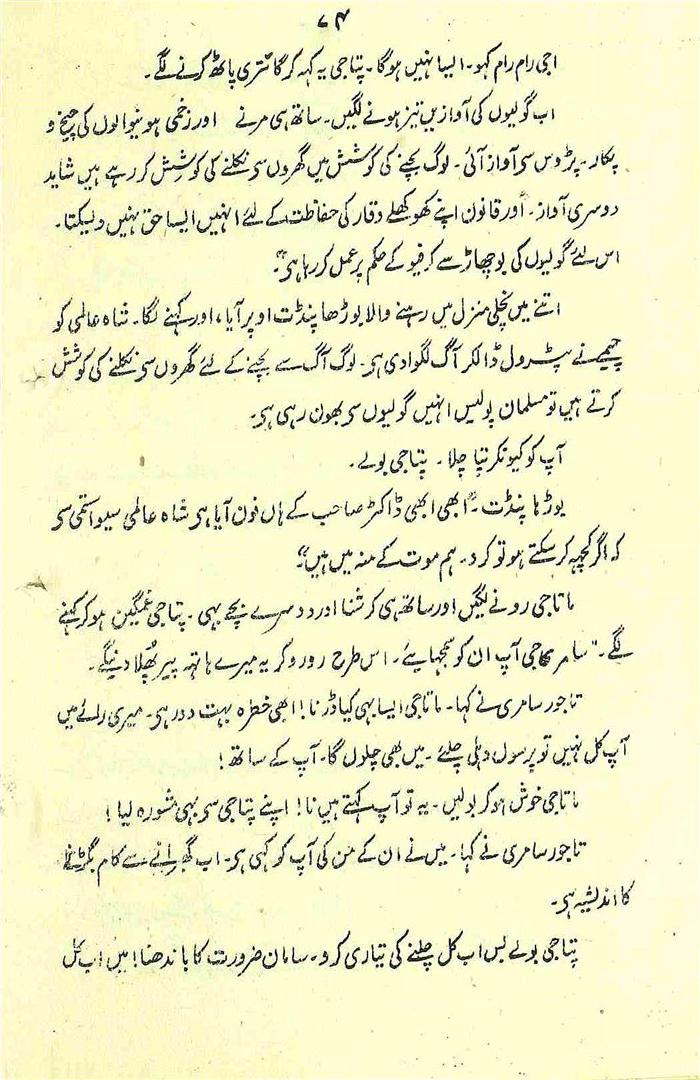 ۷۴
اجی رام رام کہو۔ ایسا نہیں ہوگا۔ پتاجی یہ کہہ کر گائتری پاٹھ کرنے لگے۔
اب گولیوں کی آوازیں تیز ہونے لگیں۔ ساتھ ہی مرنے اور زخمی ہونیوالوں کی چیخ و
پکار۔ پڑوس سی آواز آئی۔ لوگ بچنے کی کوشش میں گھروں سی نکلنے کی کوشش کر رہے ہیں شاید
دوسری آواز۔ اور قانون اپنے کھوکھلے وقار کی حفاظت کے لئے انہیں ایسا حق نہیں دیسکتا۔
اس لئے گولیوں کی بوچھاڑ سے کرفیو کے حکم پر عمل کر رہا ہی"۔
اتنے میں نچلی منزل میں رہنے والا بوڑھا پنڈت اوپر آیا، اور کہنے لگا۔ شاہ عالمی کو
چیمے نے پٹرول ڈالکر آگ لگوا دی ہی۔ لوگ آگ سے بچنے کے لئے گھروں سی نکلنے کی کوشش
کرتے ہیں تو مسلمان پولیس انہیں گولیوں سی بھون رہی ہی۔
آپ کو کیونکر پتا چلا۔ پتاجی بولے۔
بوڑہا پنڈت۔ "ابھی ابھی ڈاکٹر صاحب کے ہاں فون آیا ہی شاہ عالمی سیوا سمتی سی
کہ اگر کچہہ کر سکتے ہو تو کرد۔ ہم موت کے منہ میں ہیں"۔
ماتاجی رونے لگیں اور ساتھ ہی کرشنا اور دوسرے بچے بہی۔ پتاجی غمگین ہو کر کہنے
لگے۔ "سامری جی آپ ان کو سمجہایئے۔ اس طرح رو رو کر یہ میرے ہاتہہ پیر پُھلا دینگے۔
تاجور سامری نے کہا۔ ماتاجی ایسا بہی کیا ڈرنا! ابھی خطرہ بہت دور ہی۔ میری رائے میں
آپ کل نہیں تو پرسوں دہلی چلئے۔ میں بھی چلوں گا۔ آپ کے ساتھ!
ماتاجی خوش ہو کر بولیں۔ یہ تو آپ کہتے ہیں نا! اپنے پتاجی سی بہی مشورہ لیا!
تاجور سامری نے کہا۔ میں نے ان کے من کی آپ کو کہی ہی۔ اب گھبرانے سے کام بگڑنے
کا اندیشہ ہی۔
پتاجی بولے بس اب کل چلنے کی تیاری کرو۔ سامان ضرورت کا باندھنا! میں اب کل